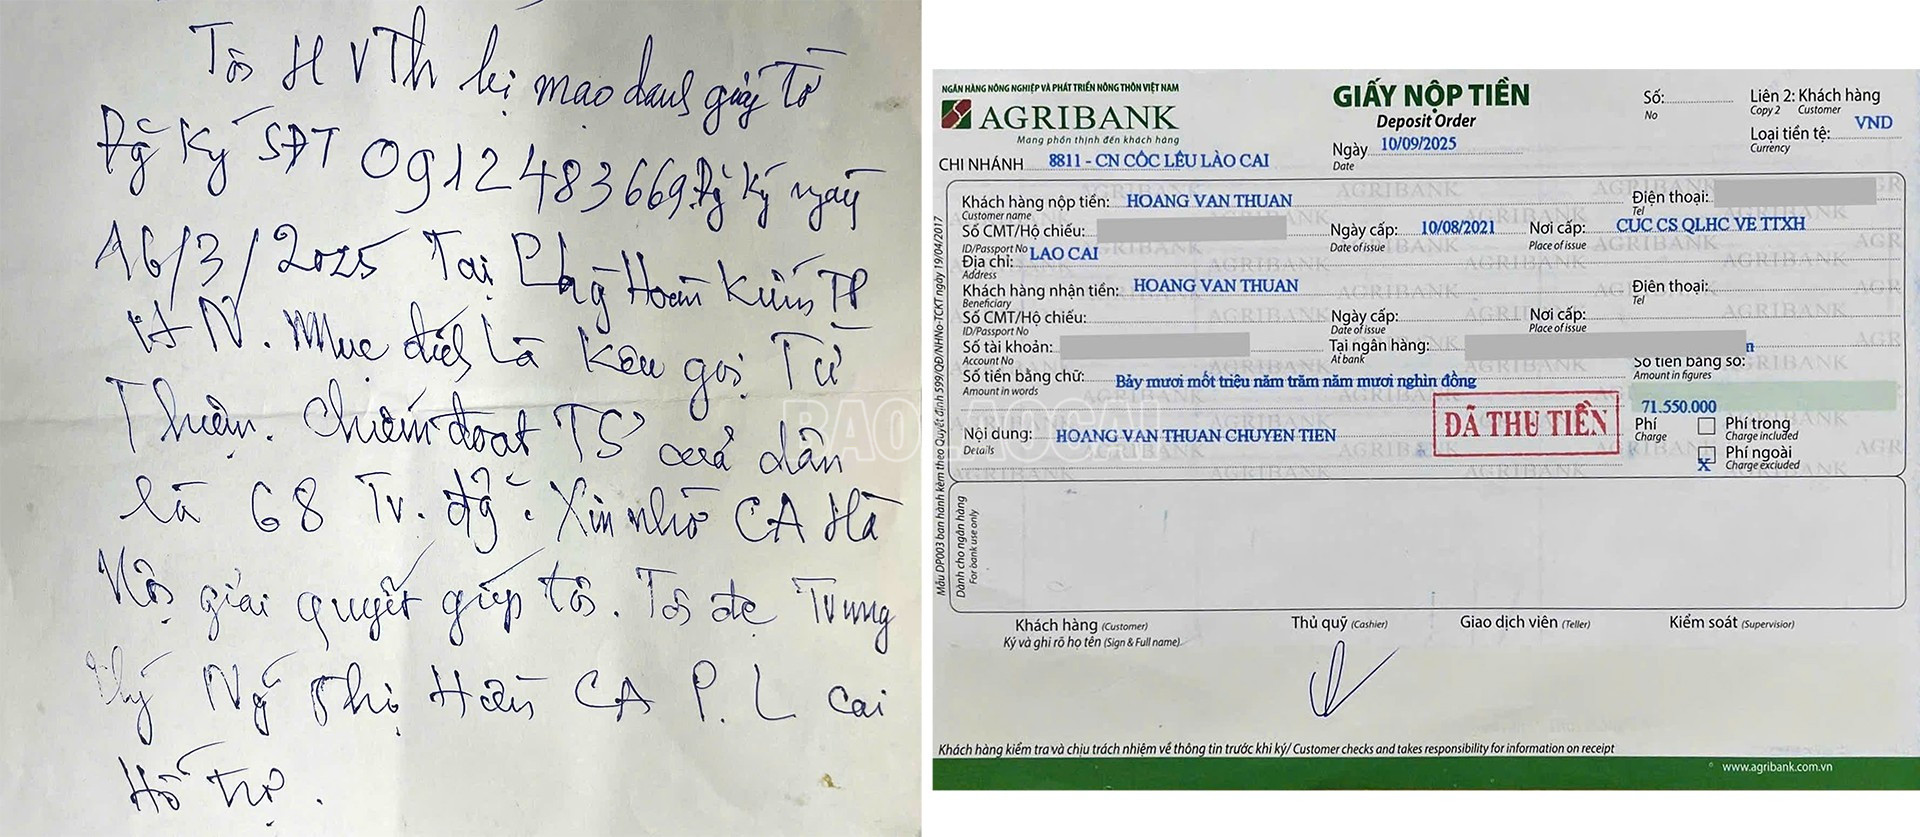 Tôi H VTh bị mạo danh giấy tờ
Đg Ký SĐT 0912483669. Đg Ký ngày
16/3/2025 Tại Phg Hoàn Kiếm TP
HN. Mục đích Là Kêu gọi Từ
Thiện. Chiếm đoạt TS của dân
là 68 Tr. đg. Xin nhờ CA Hà
Nội giải quyết giúp tôi. Tôi đc Trung
Ng Thị Hiền CA P. L Cai
Hỗ trợ.
BAO LAOCAI
NGÂN HÀNG NÔNG NGHIỆP VÀ PHÁT TRIỂN NÔNG THÔN VIỆT NAM
AGRIBANK
Mang phồn thịnh đến khách hàng
GIẤY NỘP TIỀN
Deposit Order
Số:
No
Liên 2: Khách hàng
Copy 2 Customer
Loại tiền tệ: VND
Currency
CHI NHÁNH 8811 - CN CỐC LẾU LÀO CAI
Ngày 10/09/2025
Date
Khách hàng nộp tiền: HOANG VAN THUAN
Customer name
Điện thoại:
Tel
Số CMT/Hộ chiếu:
ID/Passport No
Ngày cấp: 10/08/2021
Date of issue
Nơi cấp: CUC CS QLHC VE TTXH
Place of issue
Địa chỉ: LAO CAI
Address
Khách hàng nhận tiền: HOANG VAN THUAN
Beneficiary
Điện thoại:
Tel
Số CMT/Hộ chiếu:
ID/Passport No
Ngày cấp:
Date of issue
Nơi cấp:
Place of issue
Số tài khoản:
Account No
Tại ngân hàng:
At bank
Số tiền bằng chữ: Bảy mươi mốt triệu năm trăm năm mươi nghìn đồng
Amount in words
Số tiền bằng số:
Amount in figures
71.550.000
Nội dung: HOANG VAN THUAN CHUYEN TIEN
Details
ĐÃ THU TIỀN
Phí
Charge
Phí trong
Charge included
Phí ngoài
X Charge excluded
Mẫu DP003 ban hành kèm theo Quyết định 599/QĐ/NHNo-TCKT ngày 19/04/2017
Dành cho ngân hàng
For bank use only
Khách hàng (Customer)
Ký và ghi rõ họ tên (Sign & Full name)
Thủ quỹ (Cashier)
Giao dịch viên (Teller)
Kiểm soát (Supervisor)
Khách hàng kiểm tra và chịu trách nhiệm về thông tin trước khi ký/ Customer checks and takes responsibility for information on receipt
www.agribank.com.vn